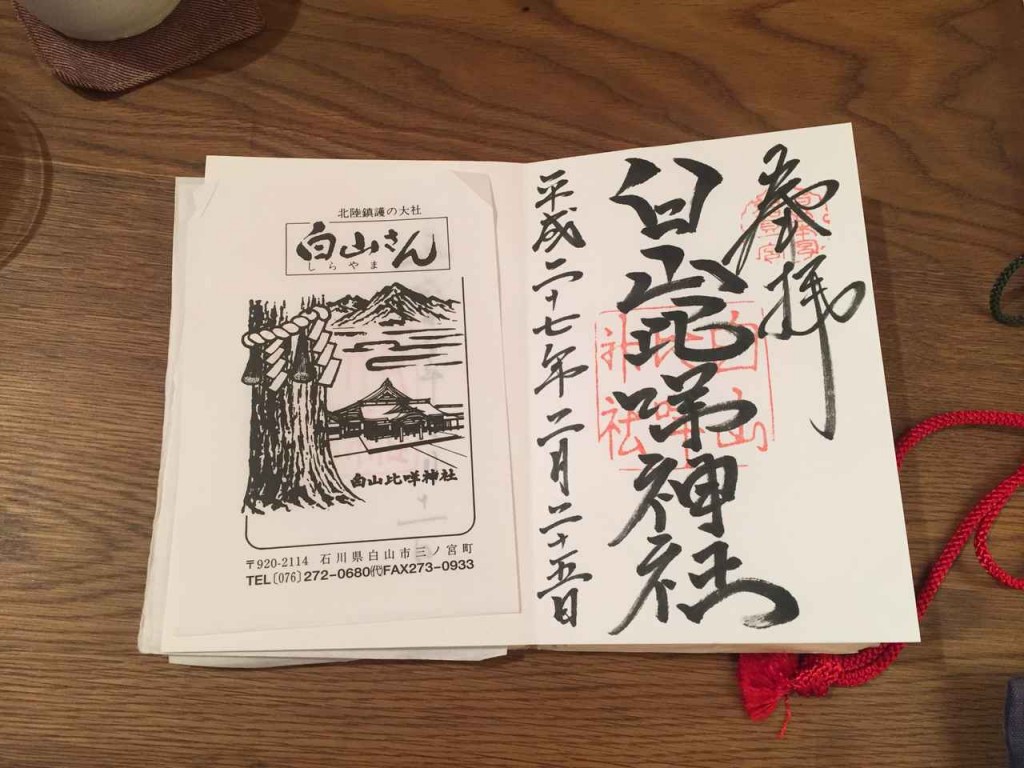 北陸鎮護の大社
白山さん
しらやま
白山比咩神社
〒920-2114 石川県白山市三ノ宮町
TEL〔076〕272-0680㈹FAX273-0933
奉拝
白山比咩神社
平成二十七年二月二十五日
白山
比咩
神社